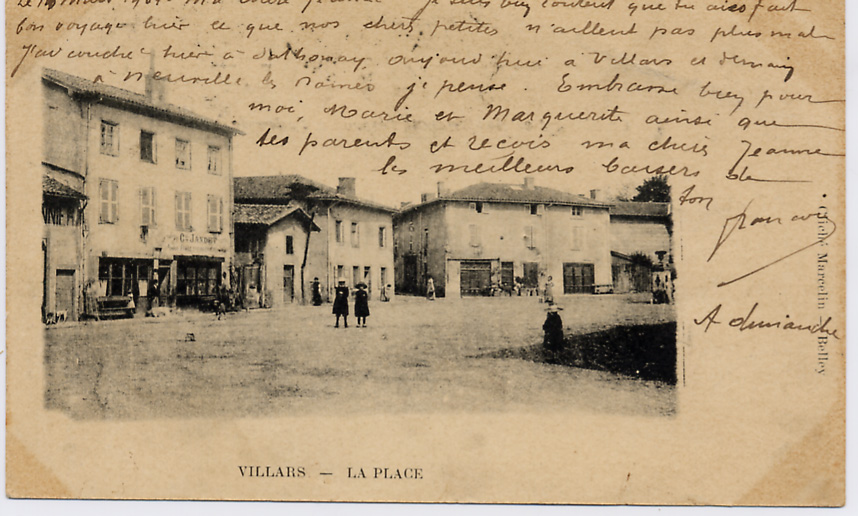 ma chère Jeanne je suis bien content que tu aies fait
bon voyage hier ce que nos chers petites n'aillent pas plus mal
J'ai couché hier à Sathonay aujourd'hui à Villars et demain
à Neuville les Dames je pense. Embrasse bien pour
moi, Marie et Marguerite ainsi que
tes parents et reçois ma chère Jeanne
les meilleurs baisers de
ton
A dimanche
C. JANDET
VILLARS. — LA PLACE
Cliché Marcelin — Belley